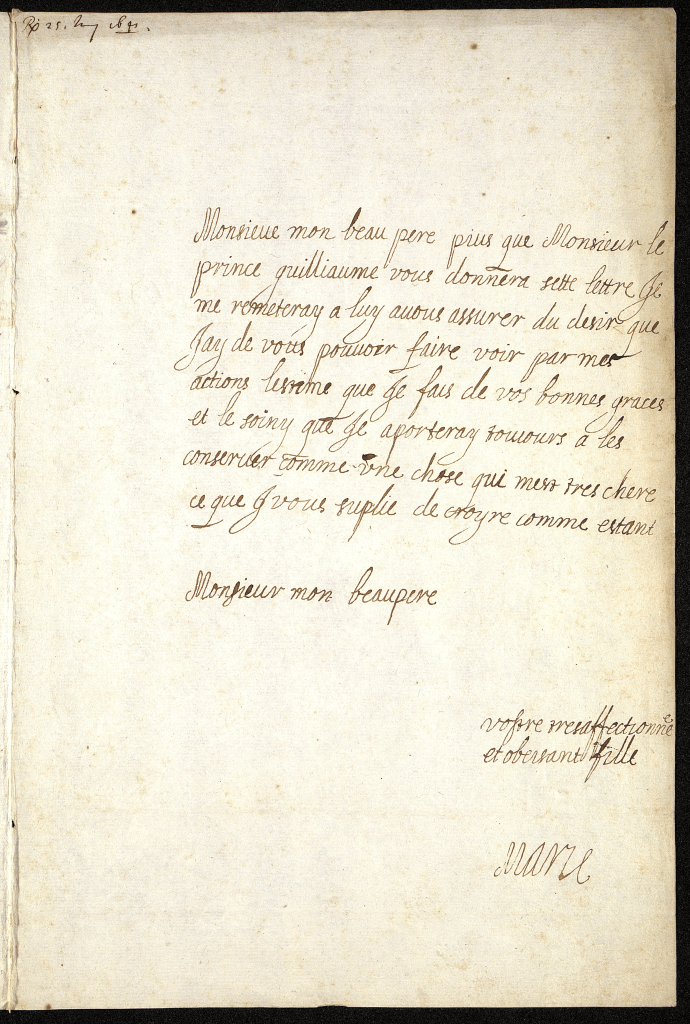 Rp 25. May 1641.
Monsieue mon beau pere pius que Monsieur le
prince guilliaume vous donnera sette lettre Je
me remeteray a luy auous assurer du desir que
Jay de vous pouuoir faire voir par mes
actions lestime que Je fais de vos bonnes graces
et le soiny que Je aporteray toujours a les
conseruer comme vne chose qui mest tres chere
ce que J vous suplie de croyre comme estant
Monsieur mon beaupere
vostre tresaffectionnée
et obeisant fille
Marie